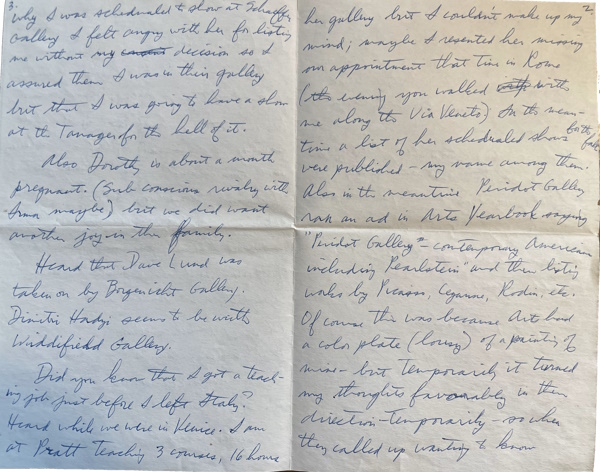 2.
her gallery but I couldn't make up my
mind; maybe I resented her missing
our appointment that time in Rome
(the evening you walked with
me along the Via Veneto). In the mean-
time a list of her schedualed shows for the fall
were published – my name among them.
Also in the meantime Peridot Gallery
ran an ad in Arts Yearbook saying
"Peridot Gallery – contemporary American
including Pearlstein" and then listing
works by Picasso, Cezanne, Rodin, etc.
Of course this was because Art had
a color plate (lousy) of a painting of
mine – but temporarily it turned
my thoughts favorably in their
direction – temporarily – so when
they called up wanting to know
3.
why I was schedualed to show at Schaffer
Gallery I felt angry with her for listing
me without my decision so I
assured them I was in their gallery
but that I was going to have a show
at the Tanager for the hell of it.
Also Dorothy is about a month
pregnant. (Sub conscious rivalry with
maybe) but we did want
another joy in the family.
Heard that Dave Lund was
taken on by Borgenicht Gallery.
Dimitri Hadzi seems to be with
Widdifield Gallery.
Did you know that I got a teach-
ing job just before I left Italy?
Heard while we were in Venice. I am
at Pratt teaching 3 courses, 16 hours